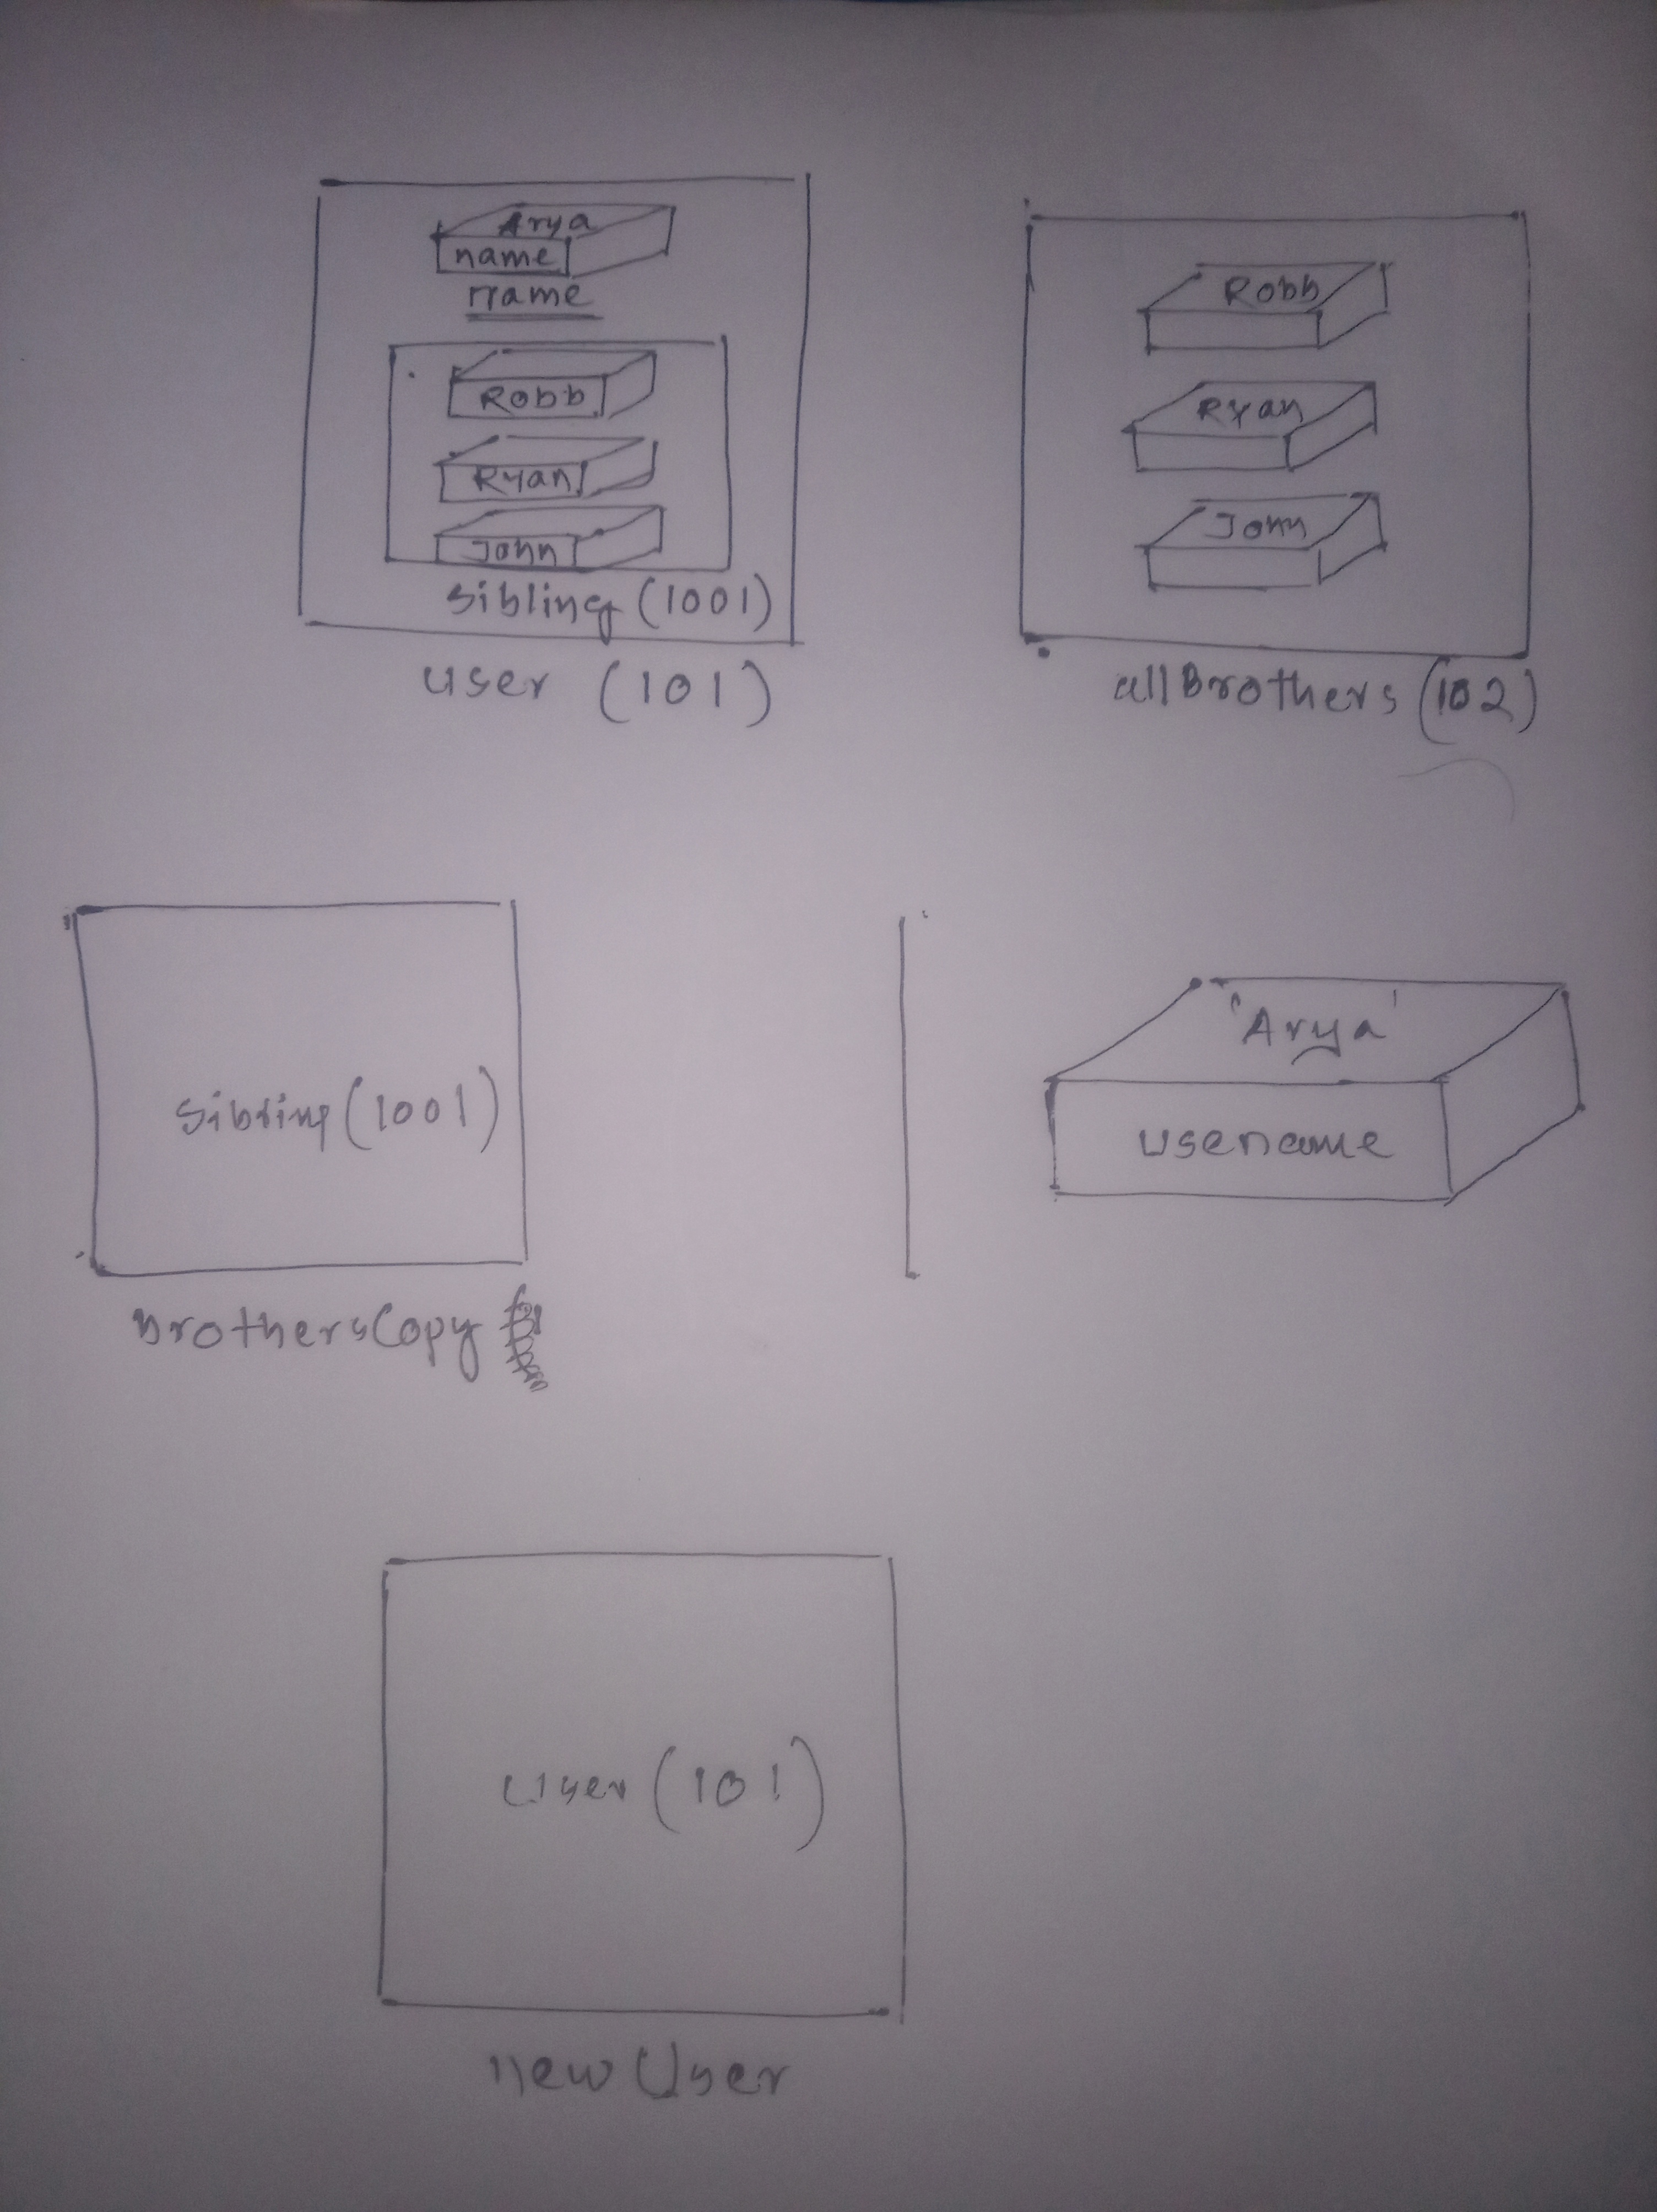 Arya
name
name
Robb
Ryan
John
sibling (1001)
user (101)
Robb
Ryan
John
allBrothers (102)
Sibling (1001)
brothersCopy
'Arya'
username
User (101)
new User